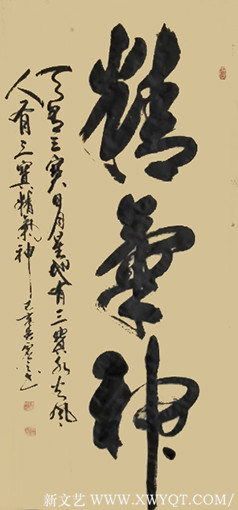 精氣神
天有三寶日月星地有三寶水火風
人有三寶精氣神 己亥
新文艺 WWW.XWYQT.COM